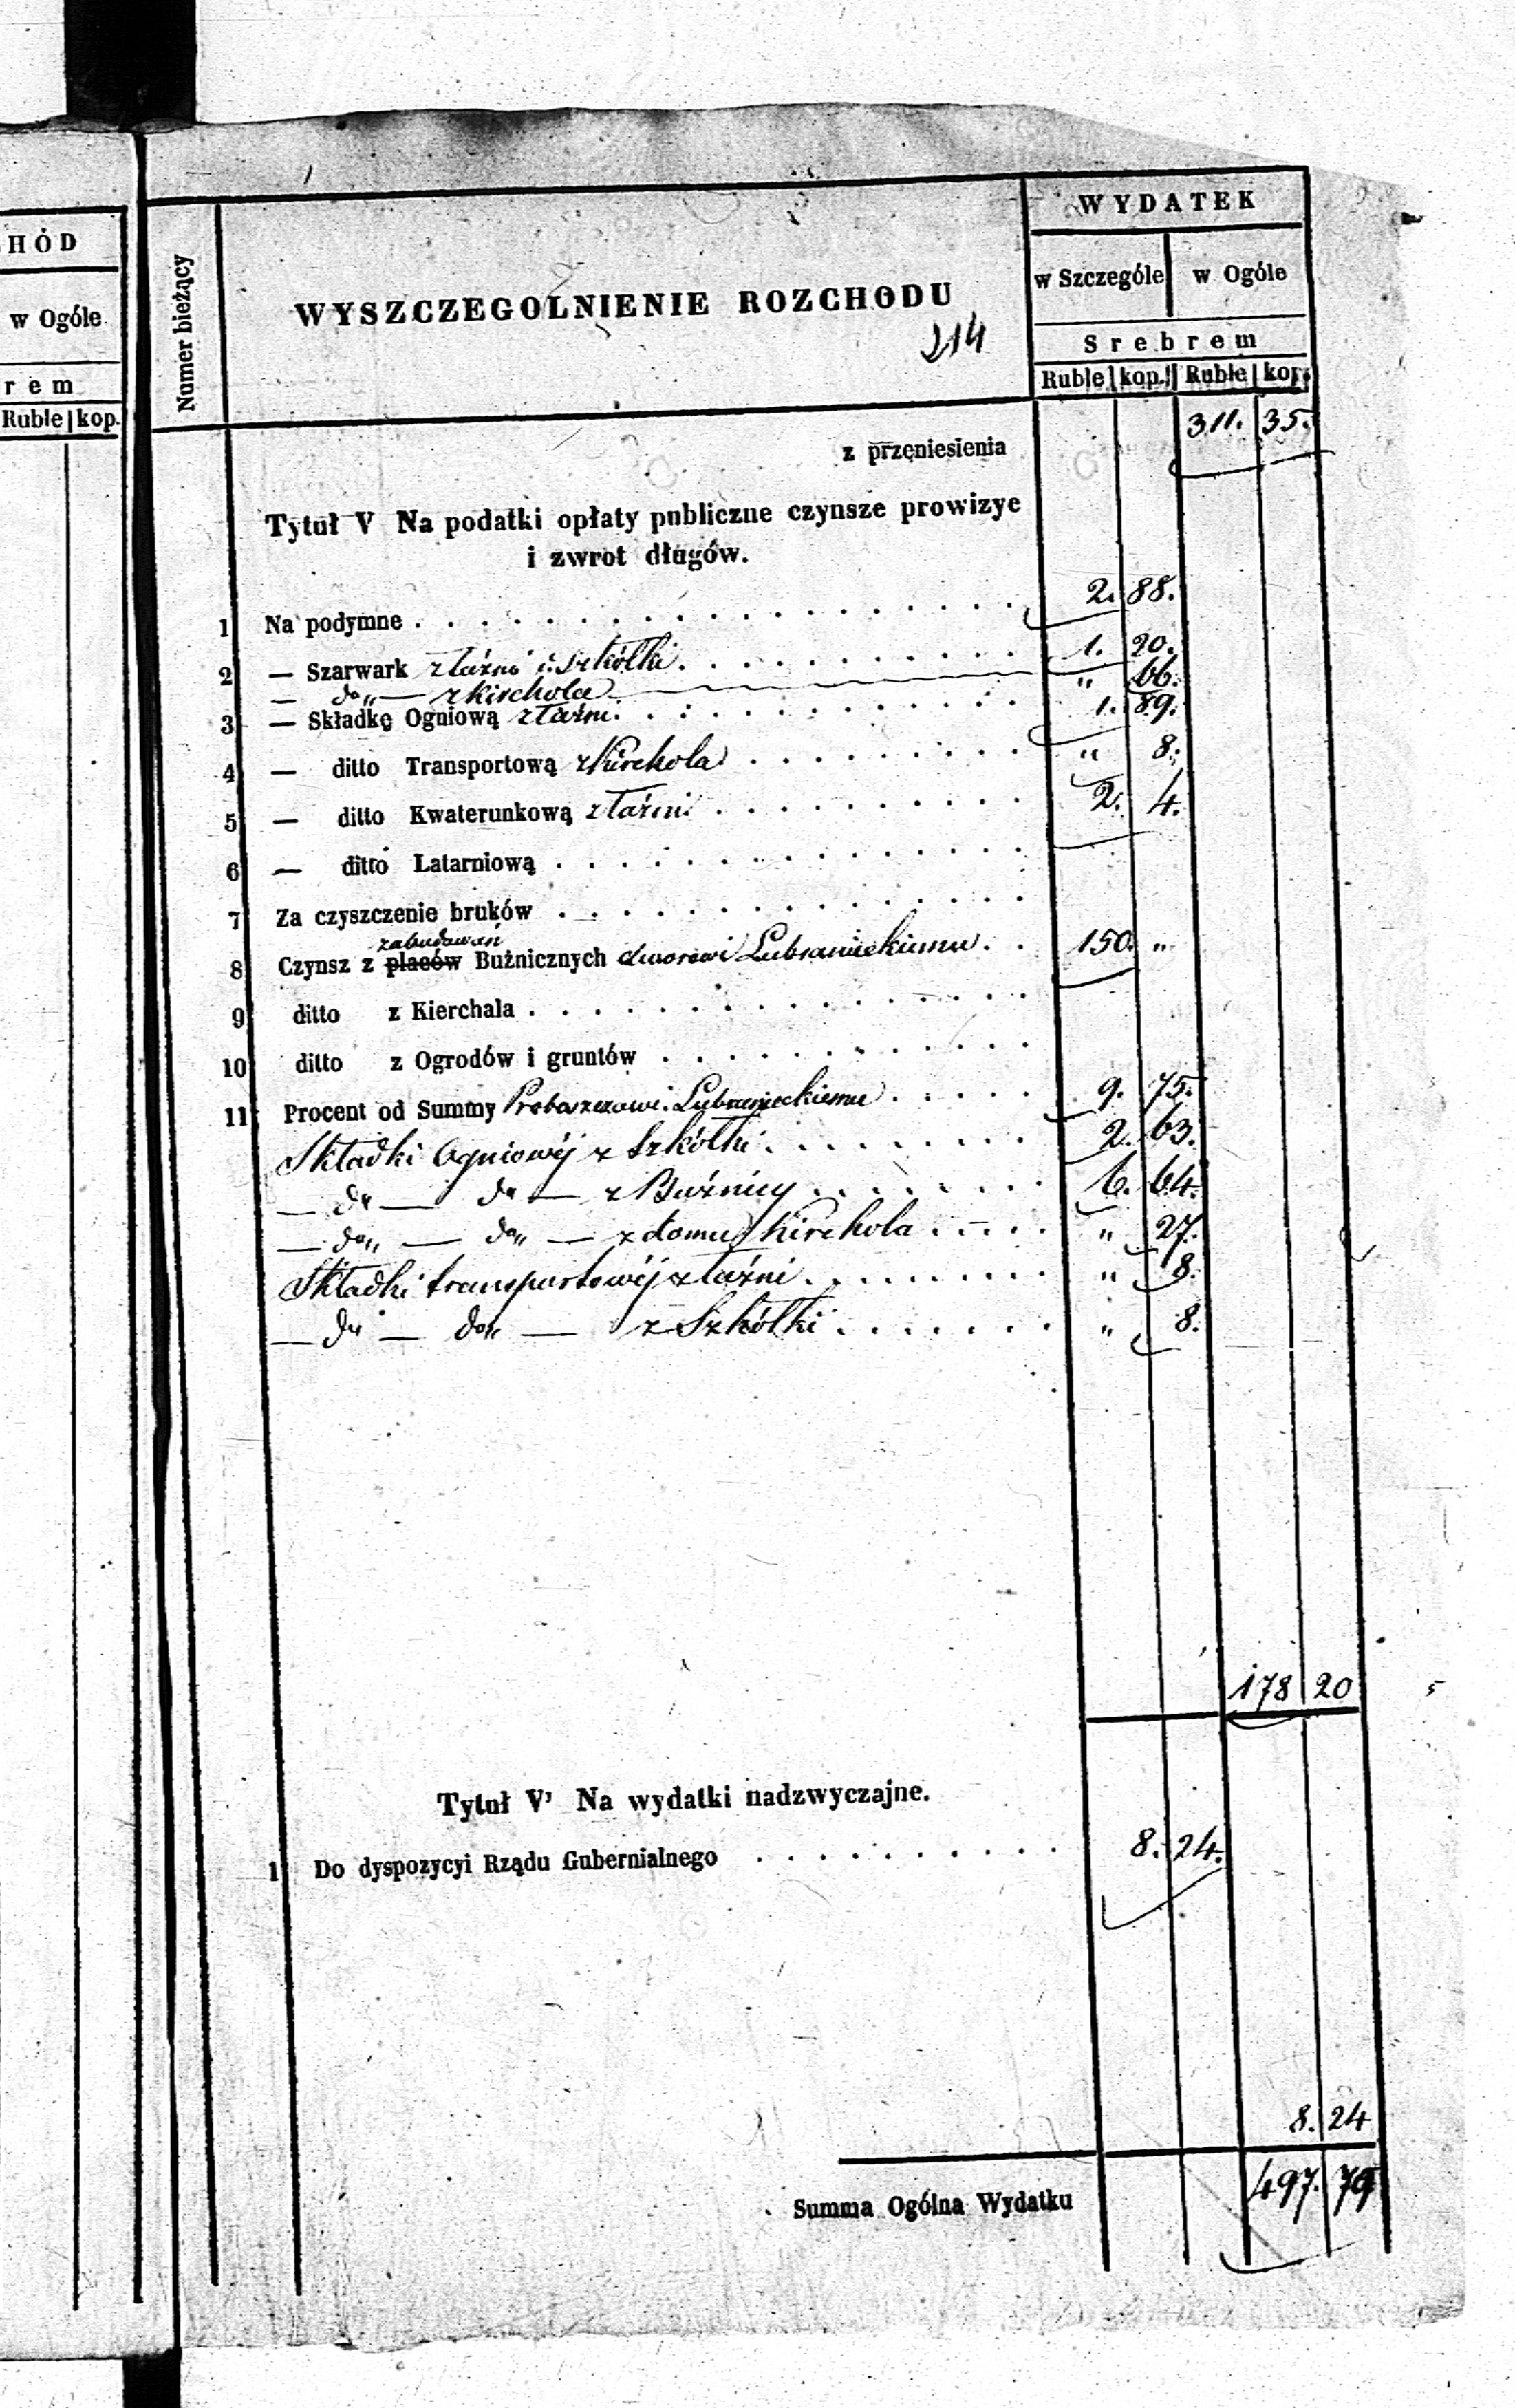 HÓD
w Ogóle
rem
Ruble kop.
Numer bieżący
WYSZCZEGOLNIENIE ROZCHODU
214
WYDATEK
w Szczególe w Ogóle
Srebrem
Ruble kop. Ruble kop.
z przeniesienia 311. 35.
Tytuł V Na podatki opłaty publiczne czynsze prowizye
i zwrot długów.
1 Na podymne . . . 2. 88.
2 — Szarwark z łaźni i szkółki . . . 1. 20.
— do „ — z kirchola — „ 66.
3 — Składkę Ogniową z łaźni . . . 1. 89.
4 — ditto Transportową z Kirchola . . . „ 8.
5 — ditto Kwaterunkową z łaźni . . . 2. 4.
6 — ditto Latarniową . . .
7 Za czyszczenie bruków . . .
zabudowań
8 Czynsz z placów Bużnicznych dworowi Lubranieckiemu . . 150. „
9 ditto z Kierchala . . .
10 ditto z Ogrodów i gruntów . . .
11 Procent od Summy Proboszczowi Lubranieckiemu . . . 9. 75.
Składki Ogniowéj z Szkółki . . . 2. 63.
— do — do — z Bużnicy . . . 6. 64.
— do „ — do „ — z domu Kirchola . . . „ 27.
Składki transportowéj z łaźni . . . „ 8.
— do — do „ — z Szkółki . . . „ 8.
178 20
Tytuł V' Na wydatki nadzwyczajne.
1 Do dyspozycyi Rządu Gubernialnego . . . 8. 24.
8. 24
Summa Ogólna Wydatku 497. 79